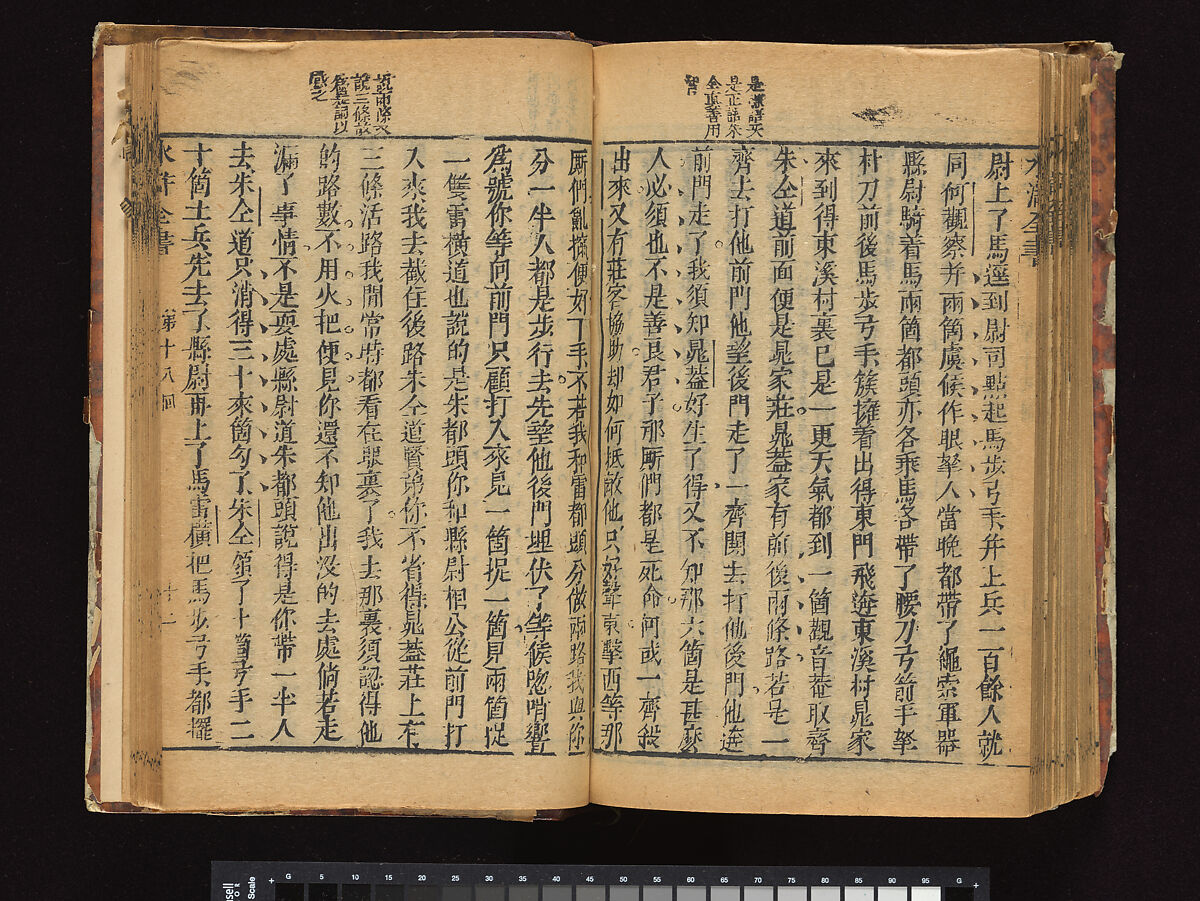 水滸全書
尉上了馬逕到尉司點起馬步弓手并土兵一百餘人就
同何觀察并兩箇虞候作眼拏人當晚都帶了繩索軍器
縣尉騎着馬兩箇都頭亦各乘馬各帶了腰刀弓箭手拏
朴刀前後馬步弓手簇擁着出得東門飛奔東溪村晁家
來到得東溪村裏已是一更天氣都到一箇觀音菴取齊
朱仝道前面便是晁家莊晁蓋家有前後兩條路若是一
齊去打他前門他望後門走了一齊鬨去打他後門他奔
前門走了我須知晁蓋好生了得又不知那六箇是甚麼
人必須也不是善良君子那厮們都是死命倘或一齊殺
出來又有莊客協助却如何抵敵他只好聲東擊西等那
厮們亂攛便好下手不若我和雷都頭分做兩路我與你
分一半人都是步行去先望他後門埋伏了等候唿哨響
爲號你等向前門只顧打入來見一箇捉一箇見兩箇捉
一雙雷橫道也說的是朱都頭你和縣尉相公從前門打
入來我去截住後路朱仝道賢弟你不省得晁蓋莊上有
三條活路我閒常時都看在眼裏了我去那裏須認得他
的路數不用火把便見你還不知他出沒的去處倘若走
漏了事情不是耍處縣尉道朱都頭說得是你帶一半人
去朱仝道只消得三十來箇勾了朱仝領了十箇弓手二
十箇士兵先去了縣尉再上了馬雷橫把馬步弓手都擺
水滸全書 第十八回 十二